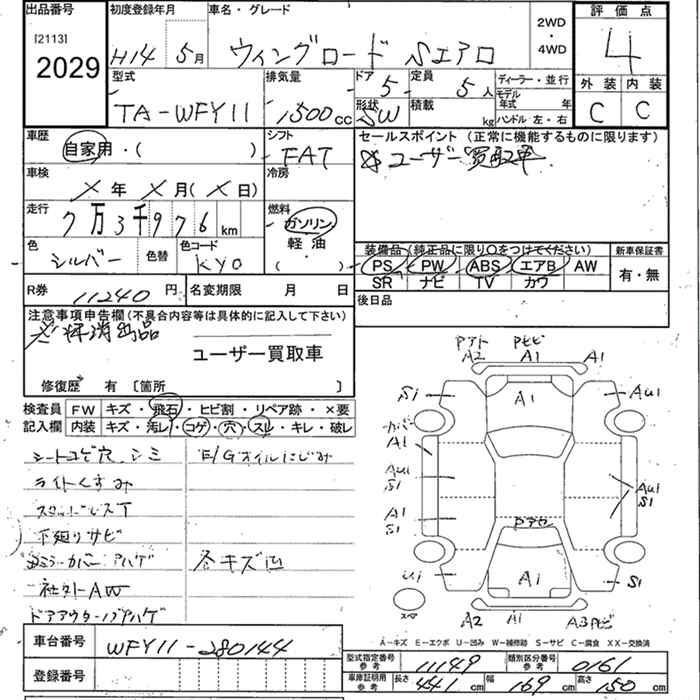 出品番号 初度登録年月 車名・グレード 2WD・4WD 評価点
[2113] 2029 H14 5月 ウィングロード Sエアロ 4
型式 排気量 ドア 5 定員 5人 ディーラー・並行 外装 内装
TA-WFY11 1500cc 形状 SW 積載 kg モデル年式 年 C C
ハンドル 左・右
車歴 シフト セールスポイント (正常に機能するものに限ります)
自家用・( ) FAT ユーザー買取車
車検 冷房
X年 X月(X日)
走行 燃料
7万3千976km ガソリン
軽油
( )
色 色替 色コード 装備品 (純正品に限り○をつけてください) 新車保証書
シルバー KY0 PS PW ABS エアB AW 有・無
SR ナビ TV カワ
R券 11240円 名変期限 月 日 後日品
注意事項申告欄(不具合内容等は具体的に記入して下さい)
ユーザー買取車
修復歴 有 [箇所 ]
検査員 FW キズ・飛石・ヒビ割・リペア跡・×要
記入欄 内装 キズ・汚レ・コゲ・穴・スレ・キレ・破レ
シートコゲ穴、シミ E/Gオイルにじみ
ライトくすみ
下廻りサビ
ミラーカバーハゲ 各キズ凹
社外AW
ドアアウターハゲ
A2 A1 A1
A1
Si AU1
カバー
A1
AU1
S1
AU1
S1
A1
S1
A1
Ui S1
スペア
A2 A1 A3
A-キズ E-エクボ U-凹み W-補修跡 S-サビ C-腐食 XX-交換済
車台番号 WFY11-280144
登録番号
型式指定番号 参考 11149 類別区分番号 参考 0161
車庫証明用 参考 長さ 441cm 幅 169cm 高さ 150cm